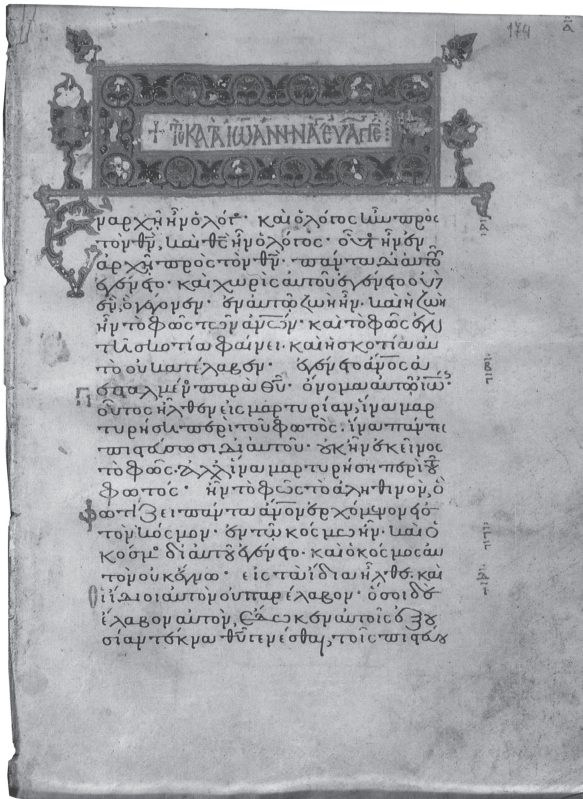 174
+ ΤΟ ΚΑΤΑ ΙΩΑΝΝΗΝ ΑΓ ΕΥΑΓΓΕ
Ἐν ἀρχῇ ἦν ὁ λόγος· καὶ ὁ λόγος ἦν πρὸς
τὸν θ̅ν̅, καὶ θ̅ς̅ ἦν ὁ λόγος· οὗτος ἦν ἐν
ἀρχῇ πρὸς τὸν θ̅ν̅· πάντα δι αὐτοῦ
ἐγένετο· καὶ χωρὶς αὐτοῦ ἐγένετο οὐδ
ἓν, ὃ γέγονεν· ἐν αὐτῶ ζωὴ ἦν· καὶ ἡ ζωὴ
ἦν τὸ φῶς τῶν α̅ν̅ω̅ν̅· καὶ τὸ φῶς ἐν
τῆ σκοτία φαίνει· καὶ ἡ σκοτία αὐ
τὸ οὐ κατέλαβεν· ἐγένετο α̅ν̅ο̅ς̅ ἀ
πεσταλμένος παρὰ θ̅υ̅· ὄνομα αὐτῶ ἰω̅·
οὗτος ἦλθεν εἰς μαρτυρίαν, ἵνα μαρ
τυρήση περὶ τοῦ φωτός, ἵνα πάντες
πιστεύσωσι δι αὐτοῦ· οὐκ ἦν ἐκεῖνος
τὸ φῶς· ἀλλ ἵνα μαρτυρήση περὶ τοῦ
φωτός· ἦν τὸ φῶς τὸ ἀληθινὸν, ὃ
φωτίζει πάντα α̅ν̅ο̅ν̅ ἐρχόμενον εἰς
τὸν κόσμον· ἐν τῶ κόσμω ἦν· καὶ ὁ
κόσμος δι αὐτοῦ ἐγένετο· καὶ ὁ κόσμος αὐ
τὸν οὐκ ἔγνω· εἰς τὰ ἴδια ἦλθε· καὶ
οἱ ἴδιοι αὐτὸν οὐ παρέλαβον· ὅσοι δὲ
ἔλαβον αὐτὸν, ἔδωκεν αὐτοῖς ἐξου
σίαν τέκνα θ̅υ̅ γενέσθαι, τοῖς πιστεύου